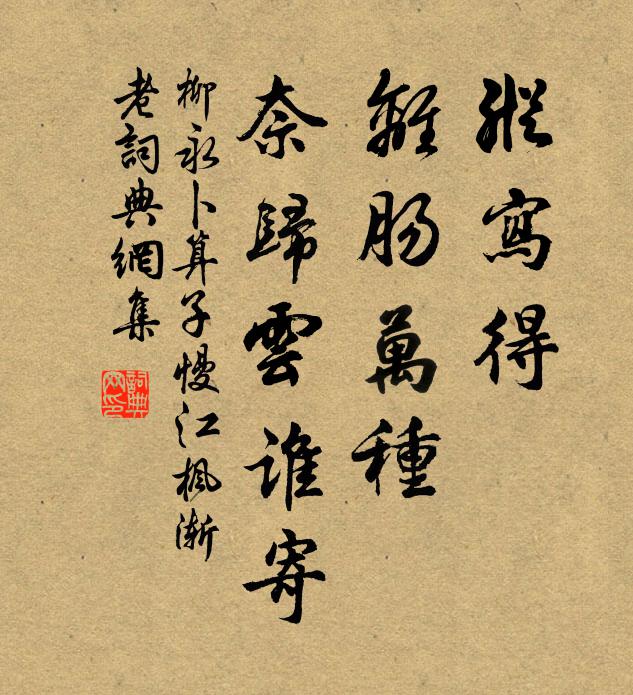 縱寫得
離腸萬種
奈歸雲誰寄
柳永卜算子慢江楓漸
老詞典網集
詞典
网印